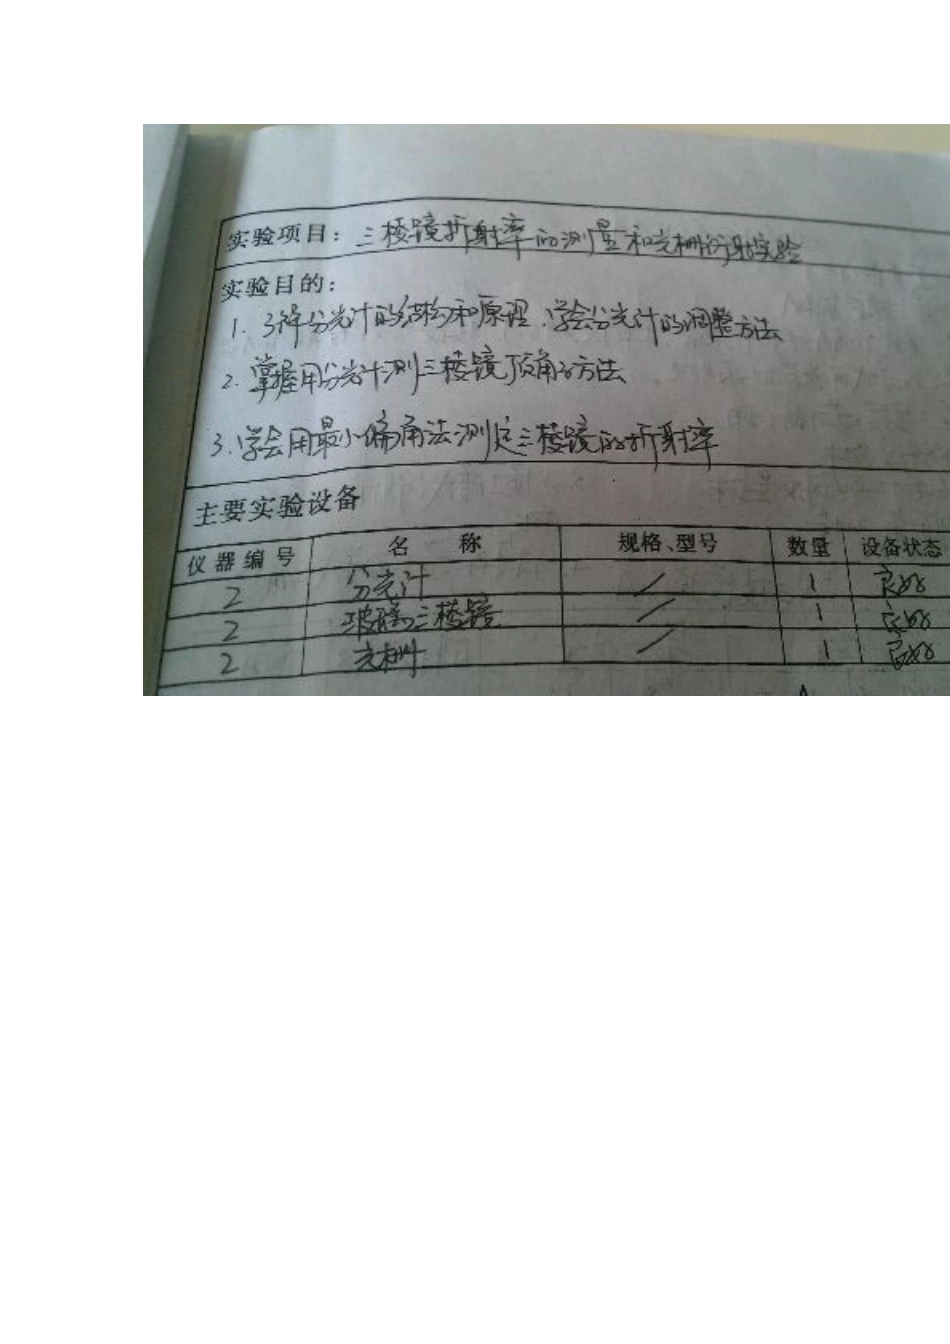 实验项目：三棱镜折射率的测量和光栅衍射实验
实验目的：
1. 了解分光计的结构和原理、学会分光计的调整方法
2. 掌握用分光计测三棱镜顶角的方法
3. 学会用最小偏角法测定三棱镜的折射率
主要实验设备
仪器编号 名 称 规格、型号 数量 设备状态
2 分光计 / 1 良好
2 玻璃三棱镜 / 1 良好
2 光栅 / 1 良好